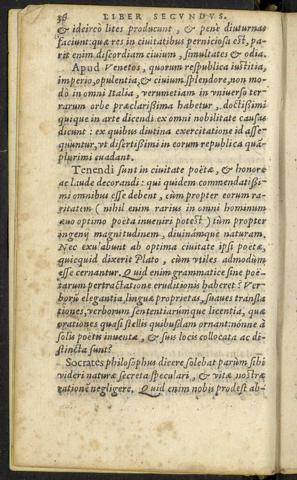 38 LIBER SECVNDVS.
& idcircò lites producunt, & penè diuturnas
faciunt: quæ res in ciuitatibus perniciosa est, pa-
rit enim discordiam ciuium, simultates & odia.
Apud Venetos, quorum respublica iustitia,
imperio, opulentia, & ciuium splendore, non mo-
dò in omni Italia, verumetiam in vniuerso ter-
rarum orbe præclarissima habetur, doctissimi
quique in arte dicendi ex omni nobilitate causas
dicunt: ex quibus diutina exercitatione id asse-
quuntur, vt disertissimi in eorum republica quá-
plurimi euadant.
Tenendi sunt in ciuitate poëtæ, & honore
ac laude decorandi: qui quidem commendatissi-
mi omnibus esse debent, cùm propter eorum ra-
ritatem (nihil enim rarius in omni hominum
æuo optimo poëta inueniri potest) tùm propter
ingenij magnitudinem, diuinámque naturam.
Nec exulabunt ab optima ciuitate ipsi poëtæ,
quicquid dixerit Plato, cùm vtiles admodùm
esse cernantur. Quid enim grammatice sine poë-
tarum pertractatione eruditionis haberet? Ver-
ború elegantia, linguæ proprietas, suaues transla
tiones, verborum sententiarúmque licentia, quæ
orationes quasi stellis quibusdam ornant: nónne à
solis poëtis inuentæ, & suis locis collocatæ ac di-
stincta sunt?
Socrates philosophus dicere solebat parùm sibi
videri naturæ secreta speculari, & vitæ nostræ
rationē negligere. Quid enim nobis prodest ab-